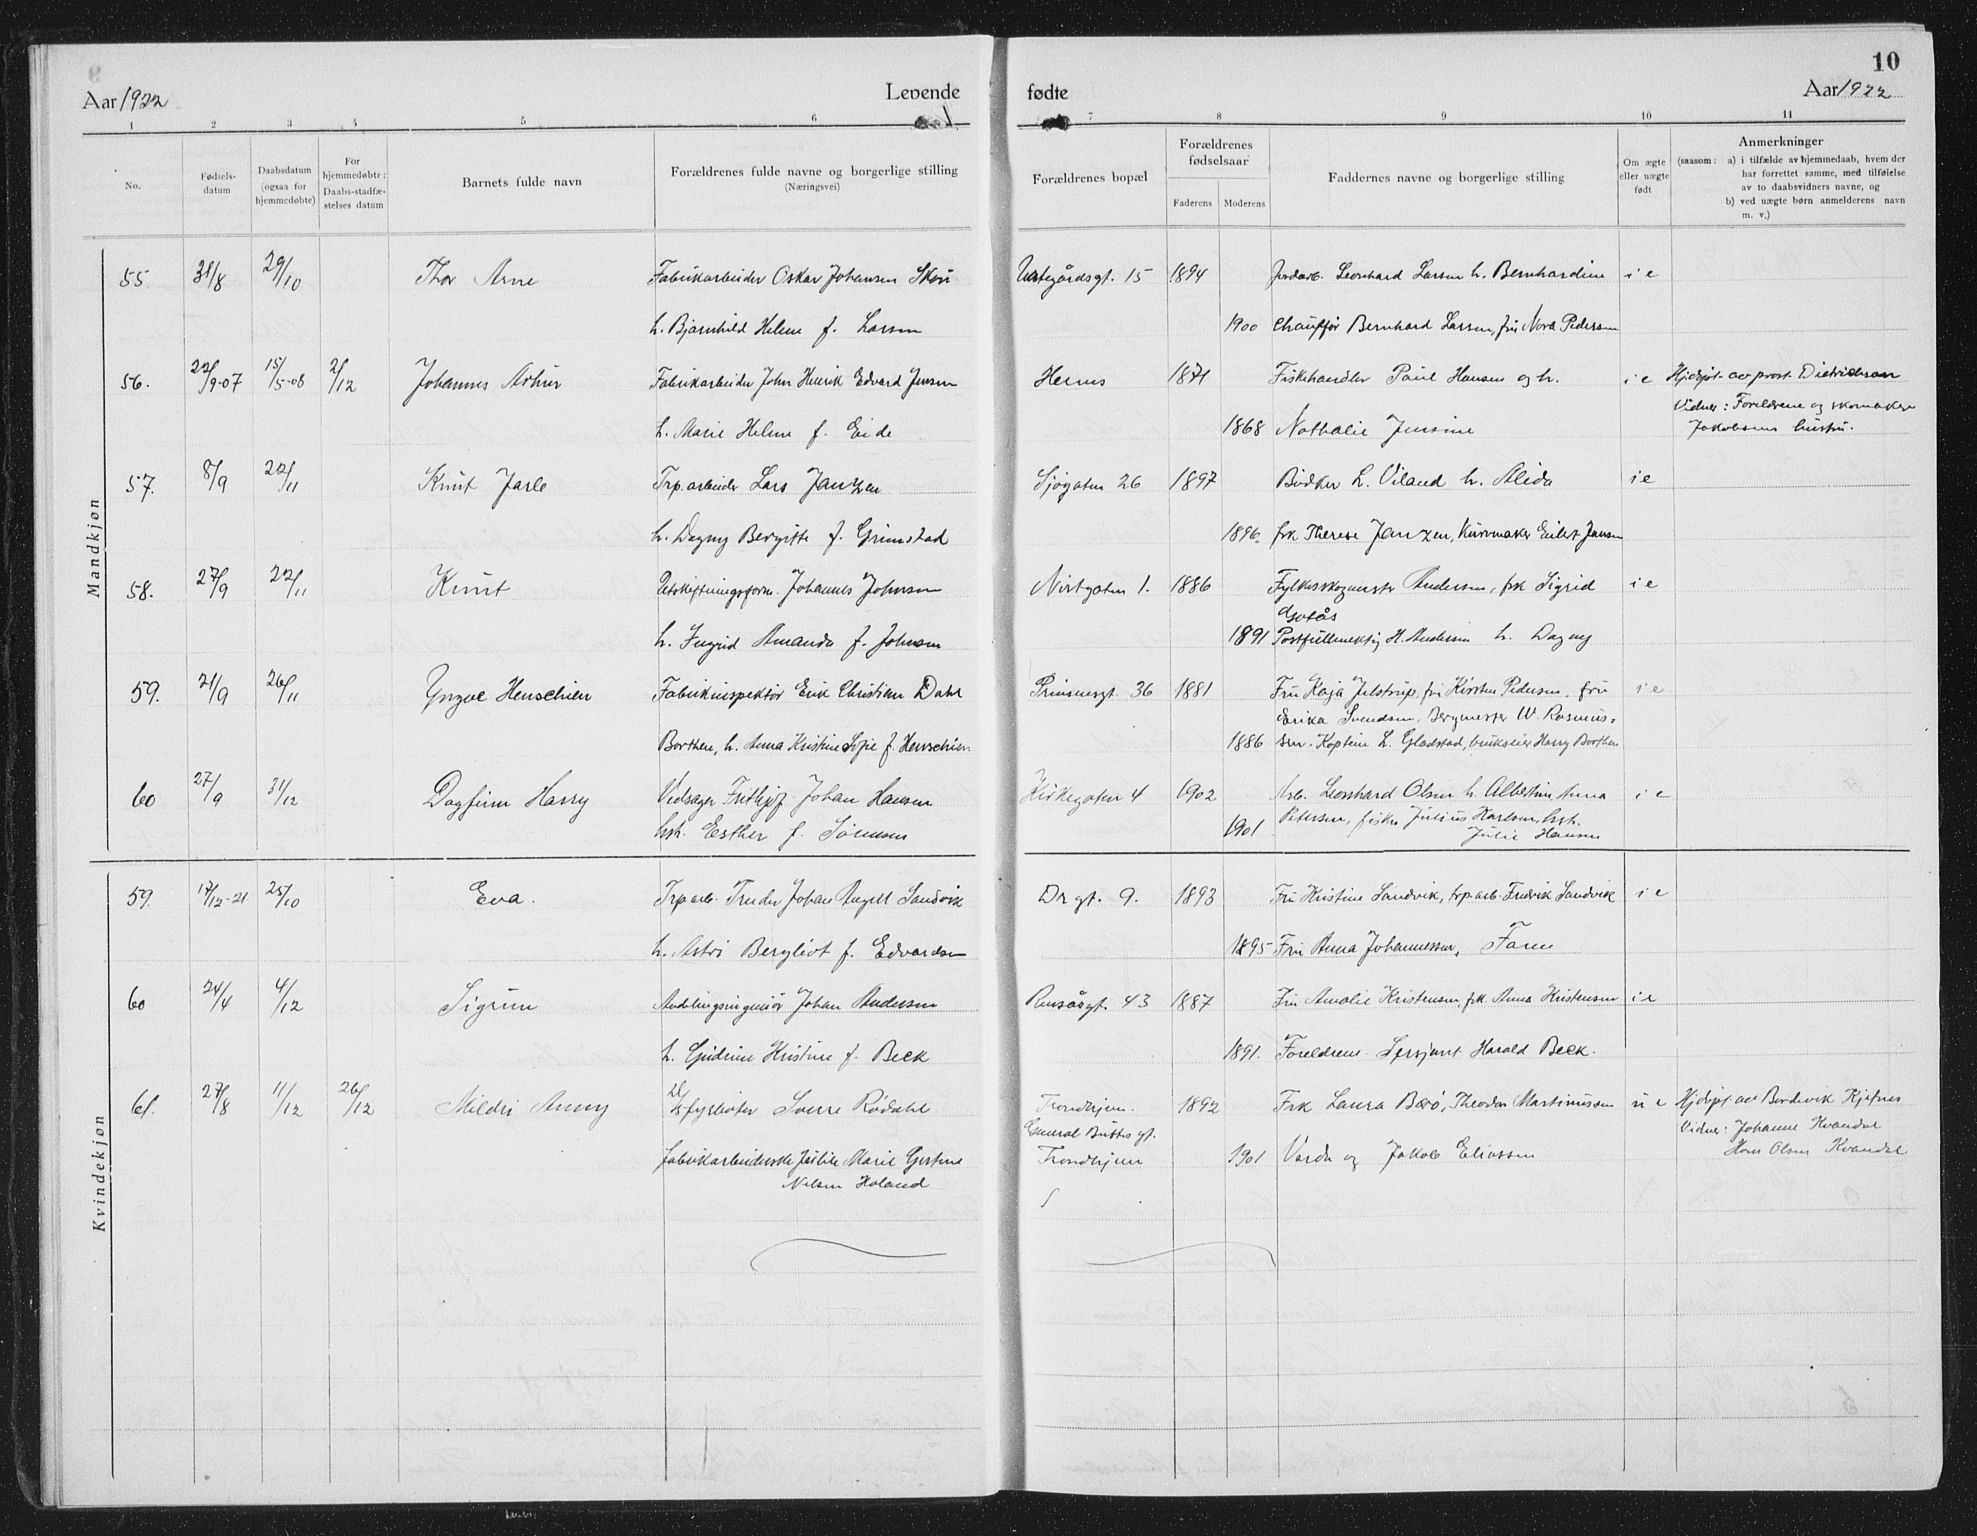 10
Aar 1922 Levende fødte Aar 1922
1 2 3 4 5 6 7 8 9 10 11
No.
Fødsels-
datum
Daabsdatum
(ogsaa for
hjemmedøbte)
For
hjemmedøbte:
Daabs-stadfæ-
stelses datum
Barnets fulde navn
Forældrenes fulde navne og borgerlige stilling
(Næringsvei)
Forældrenes bopæl
Forældrenes
fødselsaar
Faderens Moderens
Faddernes navne og borgerlige stilling
Om ægte
eller uægte
født
Anmerkninger
(saasom: a) i tilfælde av hjemmedaab, hvem der
har forrettet samme, med tilføielse
av to daabsvidners navne, og
b) ved uægte børn anmelderens navn
m. v.)
Mandkjøn
55. 31/8 29/10 Thor Arne Fabrikarbeider Oskar Johansen Skou 15 1894 Leonhard Larsen h. Bernhardine i e
h. Bjarnhild Helene f. Larsen 1900 Chauffør Bernhard Larsen, fru Nora Pedersen
56. 22/9-07 15/5-08 2/12 Johannes Arthur Fabrikarbeider John Henrik Edvard Jensen Hernes 1871 Fiskehandler Paul Hansen og h. i e Hjdøpt av prost Dietrichson
Vidner: Foreldrene og skomaker
h. Marie Helene f. Eide 1868 Nathalie Jensine Jakobsens hustru.
57. 8/9 22/11 Knut Jarle Trp.arbeider Lars Janzen Sjøgaten 26 1897 Bødker L. Viland h. Alida i e
h. Dagny Bergitte f. Grimstad 1896 frk Therese Janzen, Kurvmaker Eilert Jansen
58. 27/9 22/11 Knut Utskiftningsform. Johannes Johnsen 1. 1886 Fylkesskogmester Andersen, frk Sigrid i e
Gotås
h. Ingrid Amanda f. Johnsen 1891 Postfullmektig H. Andersen h. Dagny
59. 21/9 26/11 Yngve Henschien Fabrikinspektør Erik Christian Dahl Prinsensgt 36 1881 Fru Kaja Jelstrup, fru Kirsten Pedersen, fru i e
Erika Svendsen, Bergmester W. Rasmus-
Borthen, h. Anna Kristine Sofie f. Henschien 1886 sen. Kaptein L. Gladstad, brukseier Harry Borthen
60 27/9 31/12 Dagfinn Harry Vedsager Frithjof Johan Hansen Kirkegaten 4 1902 Arb. Leonhard Olsen h. Albertine Anna i e
Petersen, fisker Julius Karlsen, hsh.
hsh. Esther f. Sörensen 1901 Julie Hansen
Kvindekjøn
59. 17/12-21 25/10 Eva. Trp arb. Treider Johan Angell Sandvik Dr gt. 9. 1893 Fru Kristine Sandvik, trp.arb. Fredrik Sandvik i e
h. Astri Bergliot f. Edvardsen 1895 Fru Anna Johannessen, Faren
60 24/4 4/12 Sigrun Avdelingsingeniør Johan Andersen 43 1887 Fru Amalie Kristensen, frk Anna Kristensen i e
h. Gudrun Kristine f. Beck 1891. Foreldrene. Sersjant Harald Beck.
61. 27/8 11/12 26/12 Mildri Anny fyrbøter Sverre Rødahl Trondhjem. 1892 Frk Laura Berö, Theodor Martinussen u e Hjdøpt av Bordevik Kjefnes
General Buddes gt. Vidner: Johanne Kvandal
fabrikarbeiderske Marie Gertine Trondhjem 1901 Varda og Jakob Eliassen Hans Olsen Kvandal
Nilsen Holand